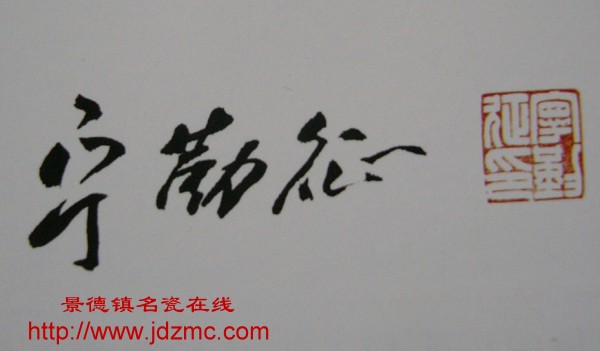 宁勤征
宁勤征印
景德镇名瓷在线
http://www.jdzmc.com